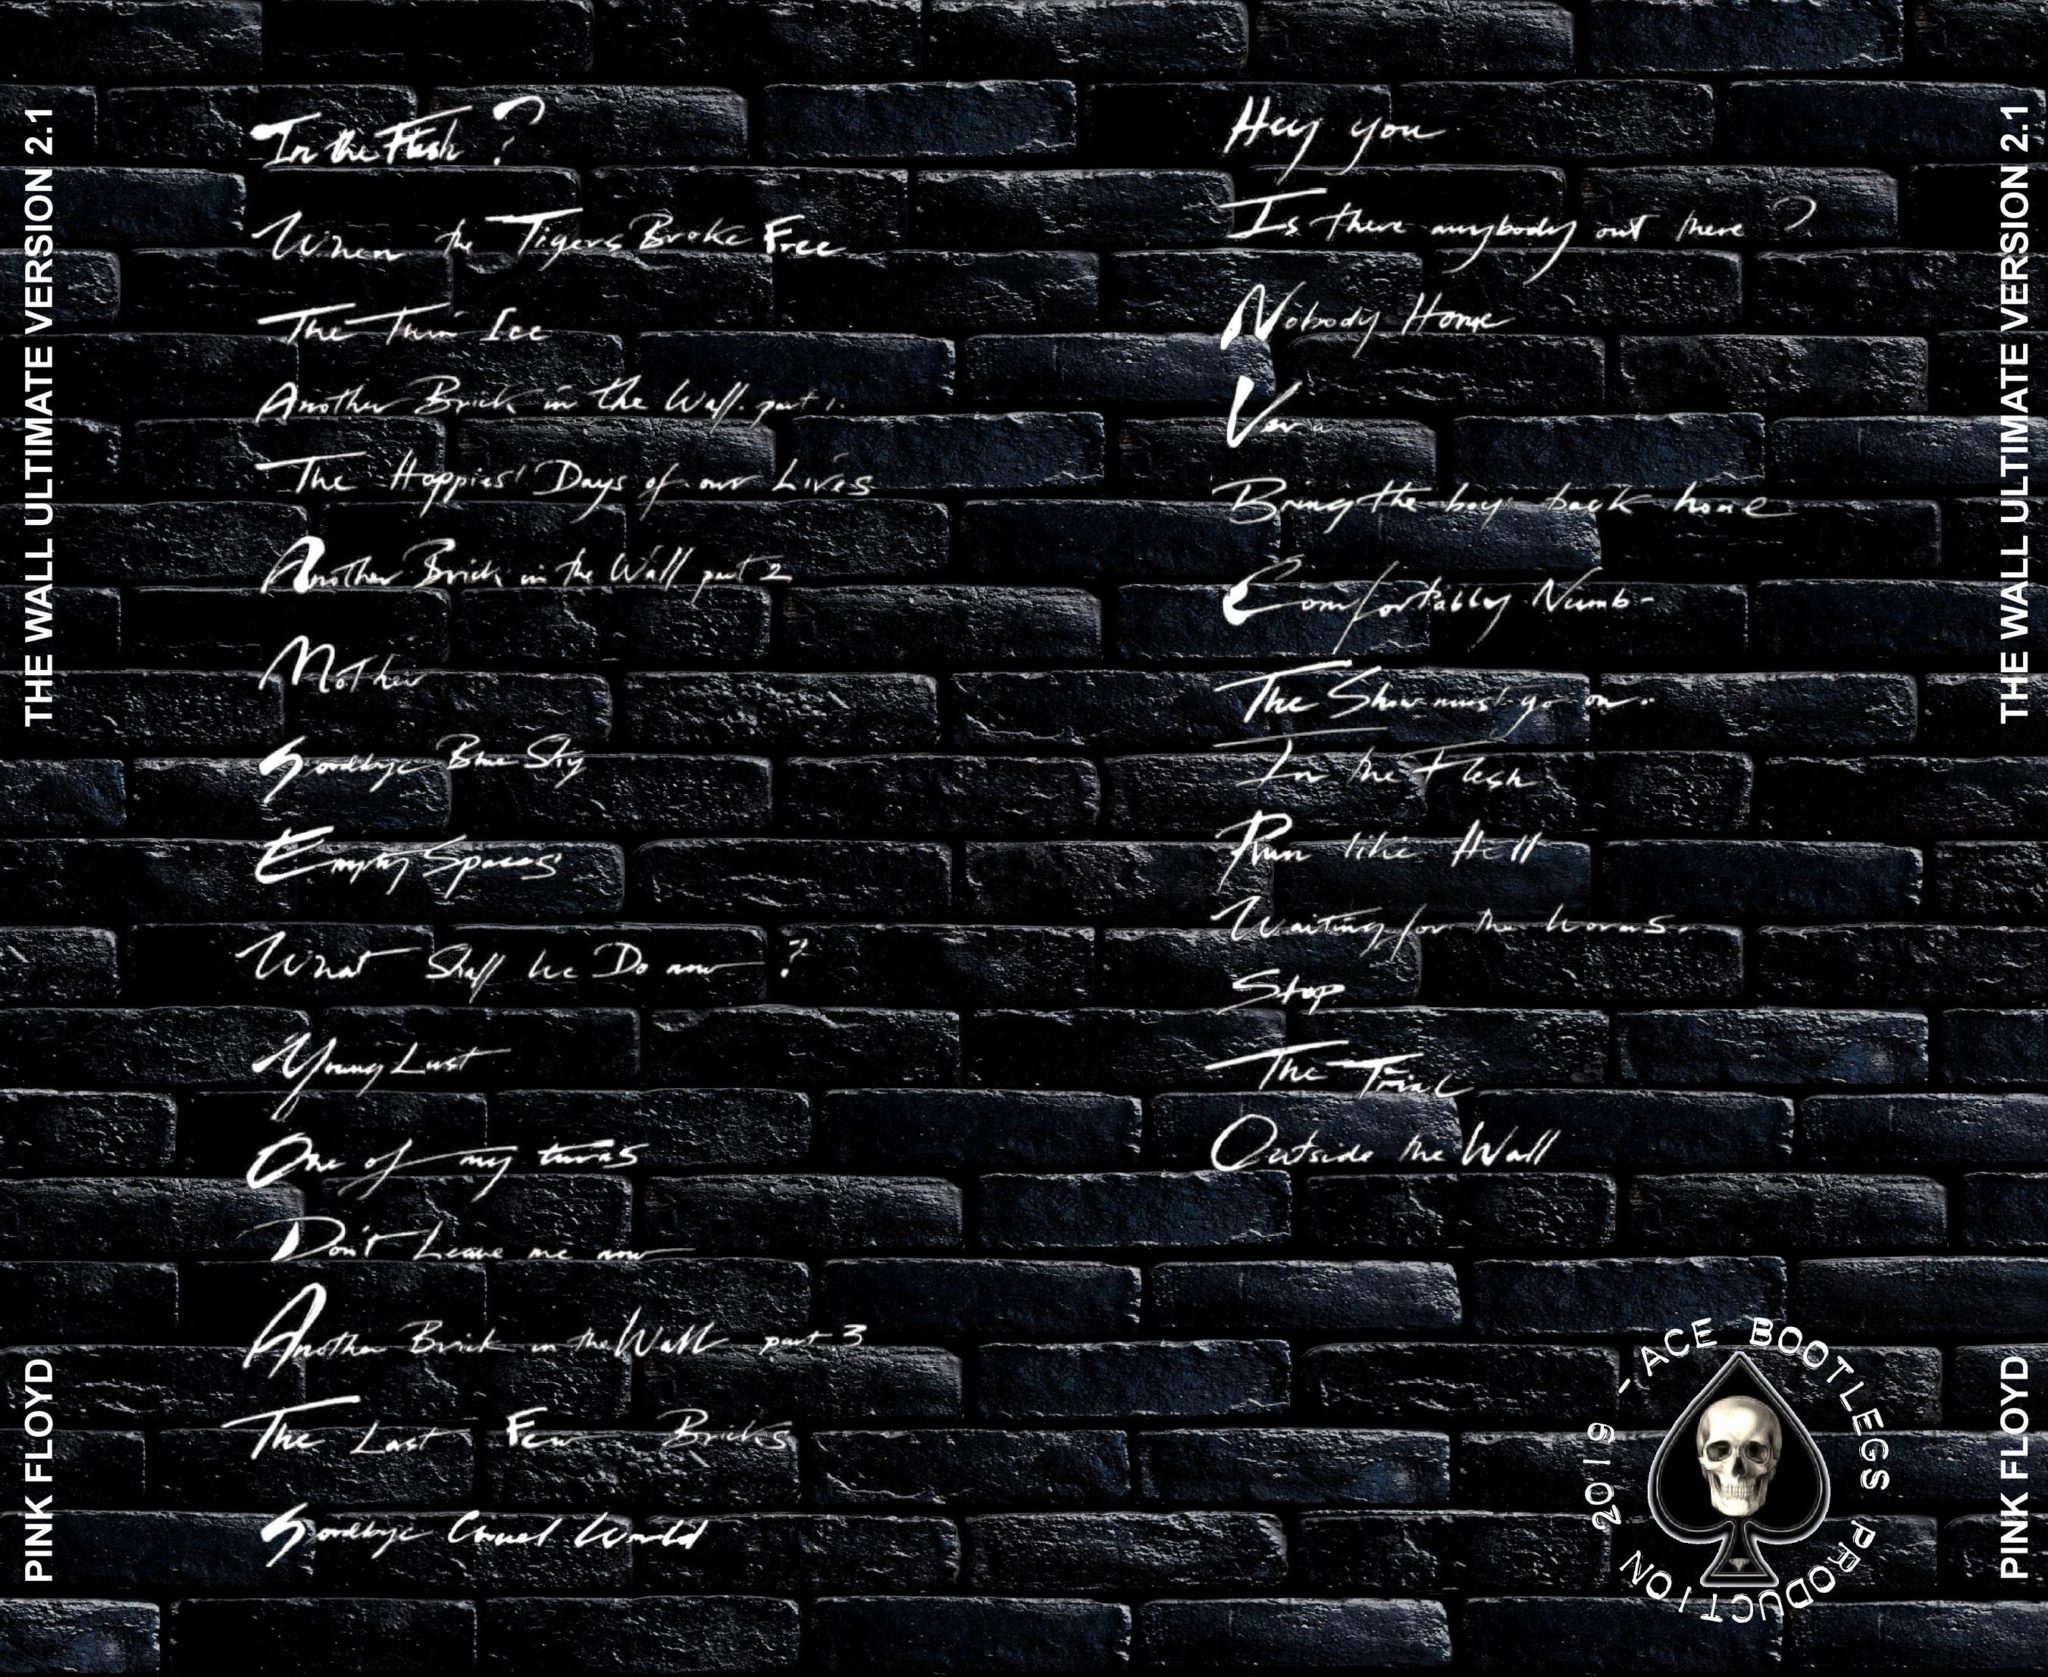 THE WALL ULTIMATE VERSION 2.1
PINK FLOYD
In the Flesh ?
When the Tigers Broke Free
The Thin Ice
Another Brick in the Wall. part 1.
The Happiest Days of our Lives
Another Brick in the Wall part 2
Mother
Goodbye Blue Sky
Empty Spaces
What Shall We Do now ?
Young Lust
One of my turns
Don't Leave me now
Another Brick in the Wall part 3
The Last Few Bricks
Goodbye Cruel World
Hey you
Is there anybody out there ?
Nobody Home
Vera
Bring the boys back home
Comfortably Numb
The Show must go on.
In the Flesh
Run like Hell
Waiting for the worms.
Stop
The Trial
Outside the Wall
2019 - ACE BOOTLEGS PRODUCTION
THE WALL ULTIMATE VERSION 2.1
PINK FLOYD